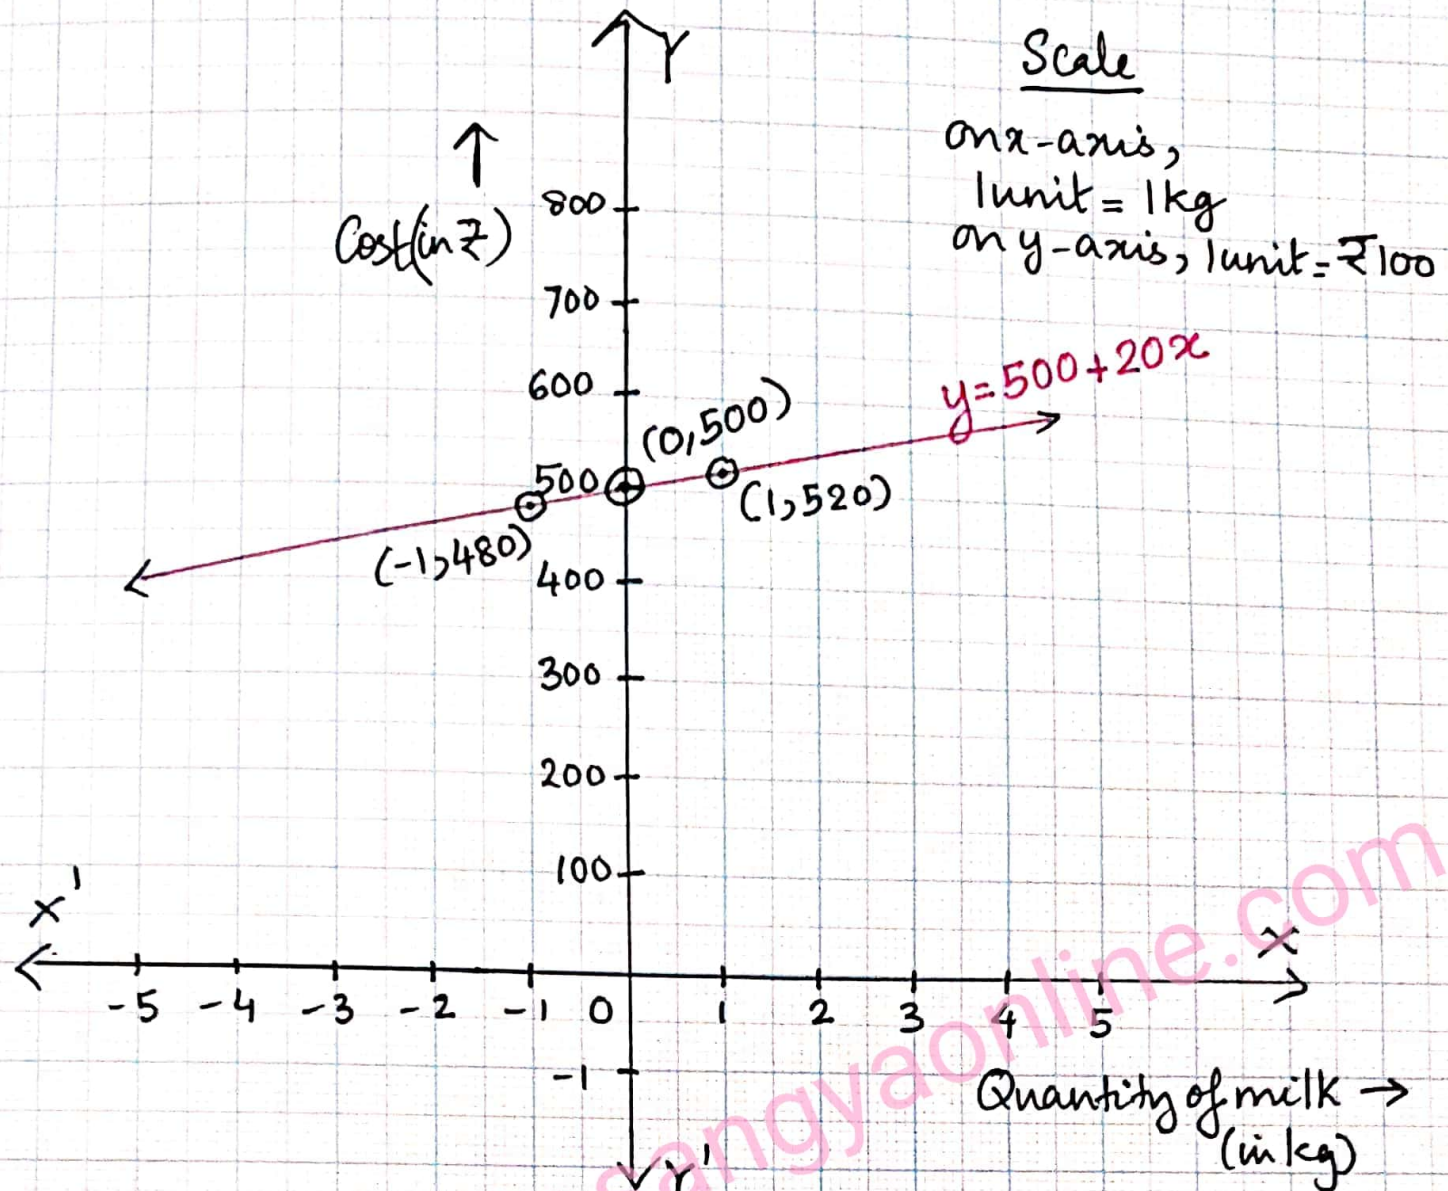 Y
Scale
on x-axis,
1 unit = 1 kg
on y-axis, 1 unit = ₹100
↑
Cost (in ₹)
800
700
600
500
400
300
200
100
y = 500 + 20x
(0, 500)
(1, 520)
(-1, 480)
X'
X
-5 -4 -3 -2 -1 0 1 2 3 4 5
-1
Quantity of milk →
(in kg)
Y'
sangyaonline.com